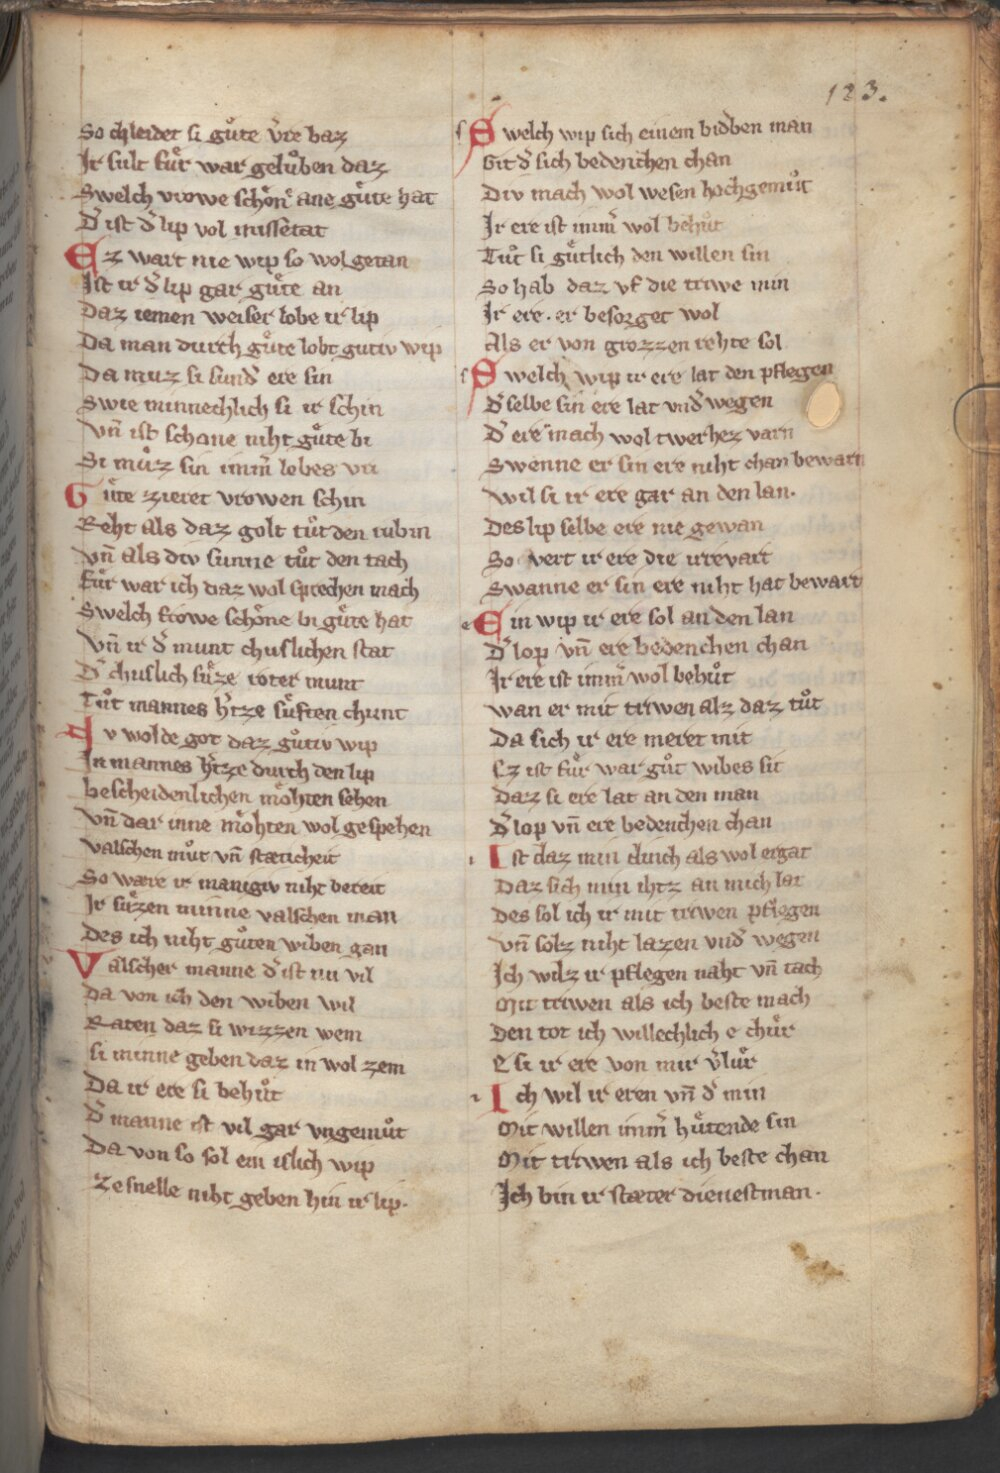 123.
So chleidet si gůte v̓re baz
Ir sult fůr war gelůben daz
Swelch vrowe schône ane gůte hat
D̓ ist d̓ lip vol missetat
Ez wart nie wip so wol getan
Ist ir d̓ lip gar gůte an
Daz iemen weiser lobe ir lip
Da man durch gůte lobt gutiv wip
Da muz si sund̓ ere sin
Swie minnechlich si ir schin
Vn̄ ist schone niht gůte bi
Si můz sin imm̓ lobes vri
Gůte zieret vrowen schin
Reht als daz golt tůt den rubin
Vn̄ als div sunne tůt den tach
Fůr war ich daz wol sprechen mach
Swelch frowe schône bi gůte hat
Vn̄ ir d̓ munt chuslichen stat
D̓ chuslich sůze roter munt
Tůt mannes h̓tze sůften chunt
Nv wolde got daz gůtiv wip
In mannes h̓tze durch den lip
bescheidenlichen môhten sehen
Vn̄ dar inne môhten wol gespehen
Valschen můt vn̄ stæticheit
So wære ir manigiv niht bereit
Ir sůzen minne valschen man
Des ich niht gůten wiben gan
Valscher manne d̓ ist nu vil
Da von ich den wiben wil
Raten daz si wizzen wem
si minne geben daz in wol zem
Da ir ere si behůt
D̓ manne ist vil gar vngemůt
Da von so sol ein islich wip
ze snelle niht geben hin ir lip.
Swelch wip sich einem bidben man
Git d̓ sich bedenchen chan
Div mach wol wesen hochgemůt
Ir ere ist imm̓ wol behůt
Tůt si gůtlich den willen sin
So hab daz vf die triwe min
Ir ere. er besorget wol
Als er von grozzen rehte sol
Swelch wip ir ere lat den pflegen
D̓ selbe sin ere lat vnd̓ wegen
D̓ ere mach wol twerhez varn
Swenne er sin ere niht chan bewarn
Wil si ir ere gar an den lan.
Des lip selbe ere nie gewan
So vert ir ere die irrevart
Swanne er sin ere niht hat bewart
Ein wip ir ere sol an den lan
D̓ lop vn̄ ere bedenchen chan
Ir ere ist imm̓ wol behůt
wan er mit triwen alz daz tůt
Da sich ir ere meret mit
Ez ist fůr war gůt wibes sit
Daz si ere lat an den man
D̓ lop vn̄ ere bedenchen chan
Ist daz min dinch als wol ergat
Daz sich min h̓tz an mich lat
Des sol ich ir mit triwen pflegen
Vn̄ solz niht lazen vnd̓ wegen
Ich wilz ir pflegen naht vn̄ tach
Mit triwen als ich beste mach
Den tot ich willechlich e chůr
E si ir ere von mir v̓lůr
Ich wil ir eren vn̄ d̓ min
Mit willen imm̓ hůtende sin
Mit triwen als ich beste chan
Ich bin ir stæter dienestman.